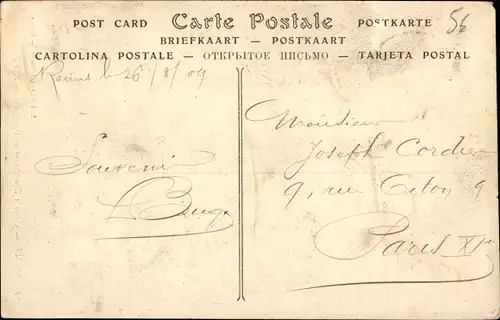 POST CARD Carte Postale POSTKARTE 56
BRIEFKAART — POSTKAART
CARTOLINA POSTALE — ОТКРЫТОЕ ПИСЬМО — TARJETA POSTAL
Reims le 26/8/09
Souvenir
Monsieur
Joseph Cordier
9, rue Citon 9
Paris XIe